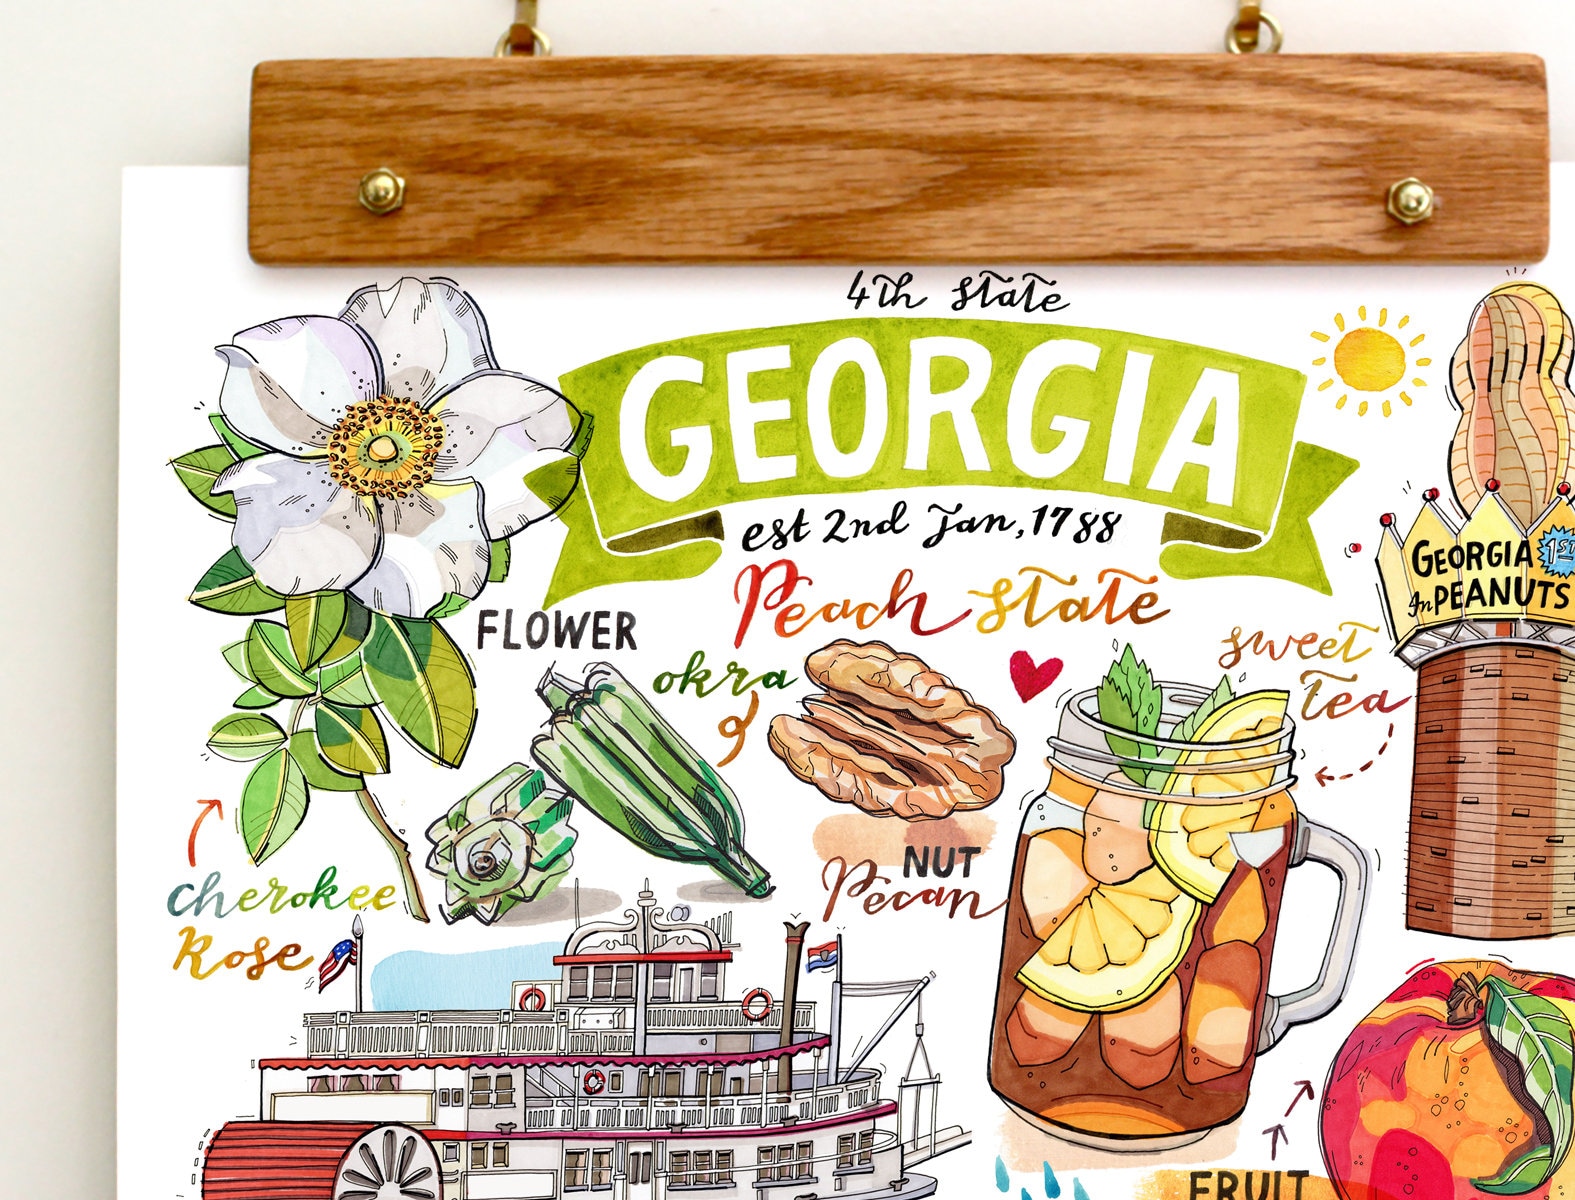 4th state
GEORGIA
est 2nd Jan, 1788
Peach State
FLOWER
okra
sweet
tea
GEORGIA 1ST
In PEANUTS
NUT
Pecan
cherokee
Rose
FRUIT